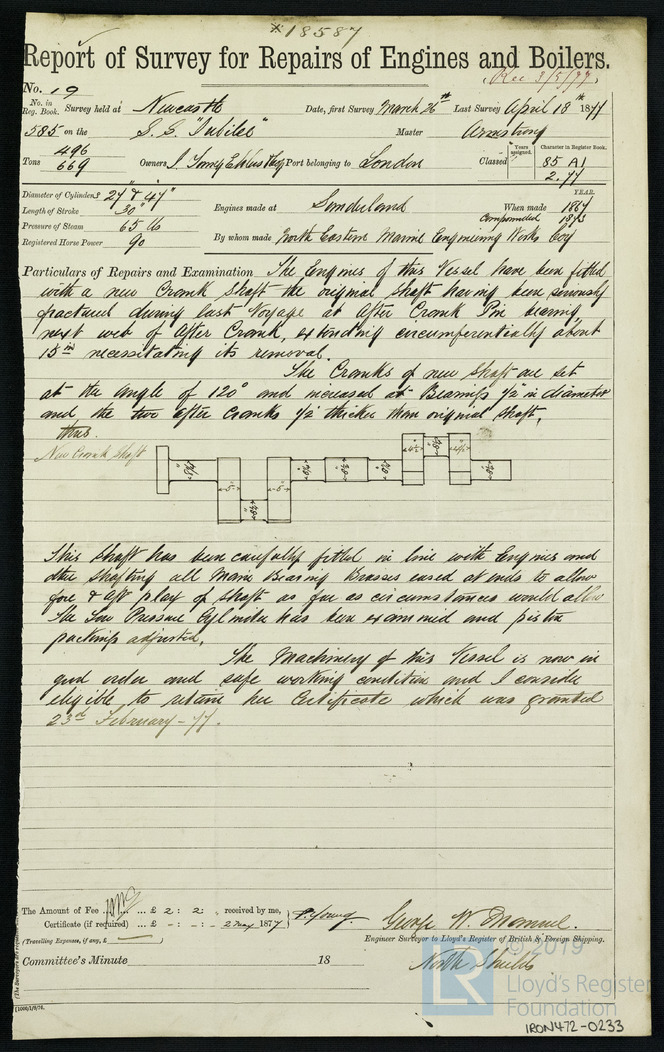 *18587
Report of Survey for Repairs of Engines and Boilers.
Rec 3/5/77
No. 19
No. in Reg. Book. Survey held at Newcastle Date, first Survey March 26th Last Survey April 18th 1877
585 on the S.S. "Jubilee" Master Armstrong
Tons 496 669 Owners Port belonging to London Classed Years assigned. Character in Register Book. 85 A1 2.77
Diameter of Cylinders 27" & 47"
Length of Stroke 30"
Pressure of Steam 65 lbs
Registered Horse Power 90
Engines made at Sunderland When made YEAR. 1867
Compounded 1873
By whom made North Eastern Marine Engineering Works Coy
Particulars of Repairs and Examination The Engines of this Vessel have been fitted
with a new Crank Shaft the original shaft having been seriously
fractured during last Voyage at After Crank Pin bearing,
next web of After Crank, extending circumferentially about
15in necessitating its removal.
The Cranks of new shaft are set
at the angle of 120° and increased at Bearings 1/2" in diameter
and the two after cranks 1/2" thicker than original shaft,
thus.
New Crank Shaft
5" 5" 4½" 4½"
This shaft has been carefully fitted in line with Engines and
other shafting all Main Bearing Brasses eased at ends to allow
fore & aft play of shaft as far as circumstances would allow
The Low Pressure Cylinder has been examined and piston
packings adjusted.
The Machinery of this Vessel is now in
good order and safe working condition and I consider
eligible to retain her Certificate which was granted
23rd February - 77.
The Amount of Fee ... £ 2 : 2 : received by me,
Certificate (if required) ... £ - : - : 2 May 1877
(Travelling Expenses, if any, £ )
P. Young
George W. Manuel.
Engineer Surveyor to Lloyd's Register of British & Foreign Shipping.
North Shields
Committee's Minute 18
© 2019
LR
Lloyd's Register
Foundation
IRON472-0233